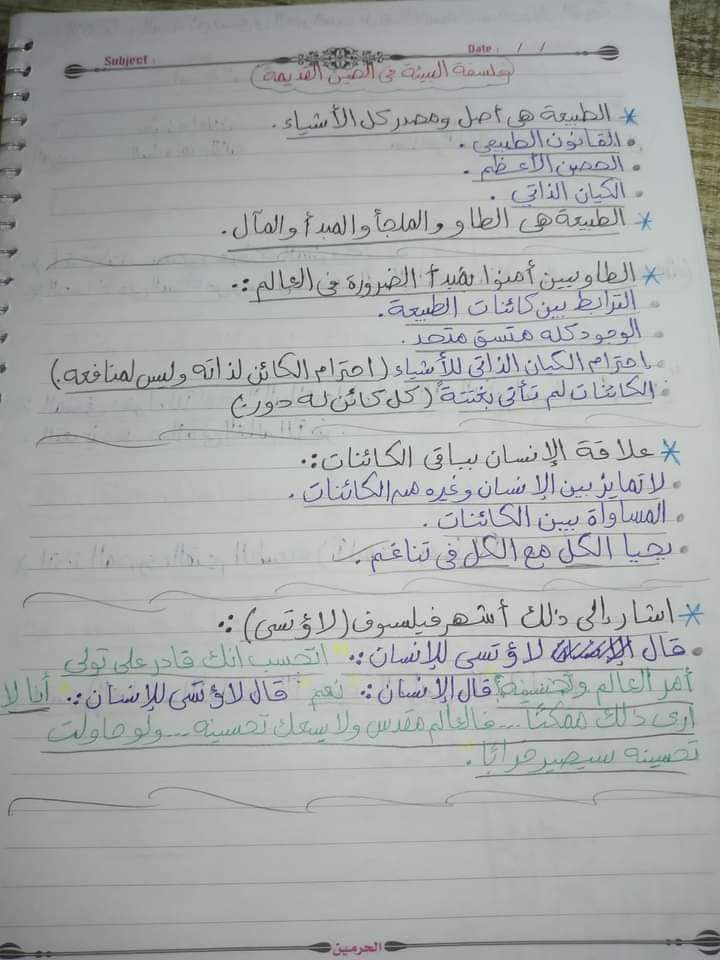 Subject :
Date : / /
فلسفة البيئة فى الصين القديمة
* الطبيعة هى أصل ومصدر كل الأشياء.
• القانون الطبيعى.
• الحصن الأعظم.
• الكيان الذاتي.
* الطبيعة هى الطاو والملجأ والمبدأ والمآل.
* الطاويين أمنوا بمبدأ الضرورة فى العالم :.
• الترابط بين كائنات الطبيعة.
• الوجود كله متسق متحد.
• احترام الكيان الذاتى للأشياء (احترام الكائن لذاته وليس لمنافعه.)
• الكائنات لم تأتى بغتتة (كل كائن له دور)
* علاقة الإنسان بباقى الكائنات :.
• لا تمايز بين الإنسان وغيره من الكائنات.
• المساواة بين الكائنات.
• يحيا الكل مع الكل فى تناغم.
* اشار إلى ذلك أشهر فيلسوف (لاؤتسى) :.
• قال لاؤتسى للإنسان :. " اتحسب انك قادر على تولى
أمر العالم وتحسينه" قال الإنسان :. "نعم" قال لاؤتسى للإنسان :. " أنا لا
أرى ذلك ممكناً... فالعالم مقدس ولا يسعك تحسينه... ولو حاولت
تحسينه سيصير خرابًا".
الحرمين